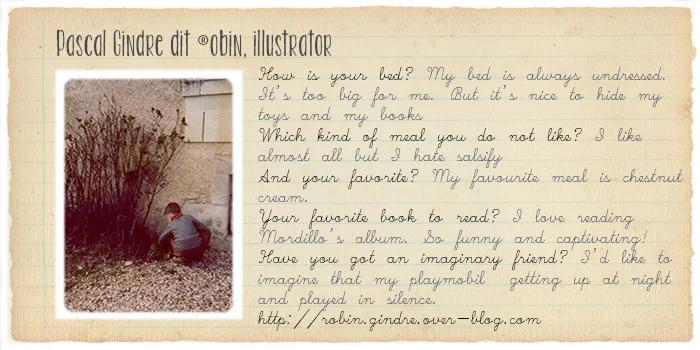 Pascal Gindre dit ®obin, illustrator
How is your bed? My bed is always undressed.
It's too big for me. But it's nice to hide my
toys and my books
Which kind of meal you do not like? I like
almost all but I hate salsify
And your favorite? My favourite meal is chestnut
cream.
Your favorite book to read? I love reading
Mordillo's album. So funny and captivating!
Have you got an imaginary friend? I'd like to
imagine that my playmobil getting up at night
and played in silence.
http://robin.gindre.over-blog.com